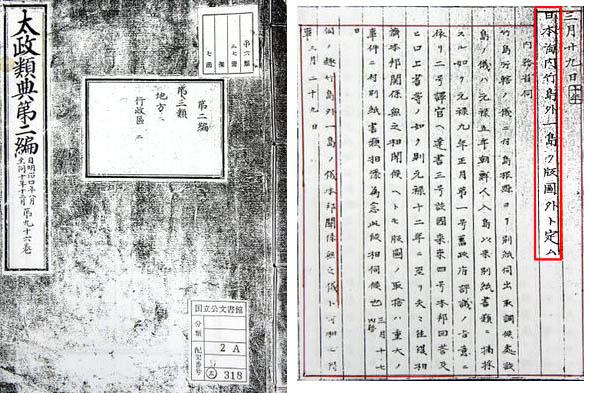 太政類典第二編
自明治四年八月
至同十年十二月
第九十六巻
第二編
第三類
地方
行政区 二
国立公文書館
分類
2 A
配架番号
318
三月廿九日 十年
日本海内竹島外一島ヲ版圖外ト定ム
内務省伺
竹島所轄ノ儀ニ付島根縣ヨリ別紙伺出取調候処該
島ノ儀ハ元禄五年朝鮮人入島以来別紙書類ニ摘採
スル如ク元禄九年正月第一号舊政府評議ノ旨意ニ
依リ二号譯官ヘ達書三号該國来柬四号本邦回答及
ヒ口上書等ノ如ク則元禄十二年ニ至リ夫々往復相
濟本邦關係無之相聞候ヘトモ版圖ノ取捨ハ重大ノ
事件ニ付別紙書類相添為念此段相伺候也 三月十七
日
伺ノ趣竹島外一島ノ儀本邦關係無之儀ト可相心得
事 三月二十九日